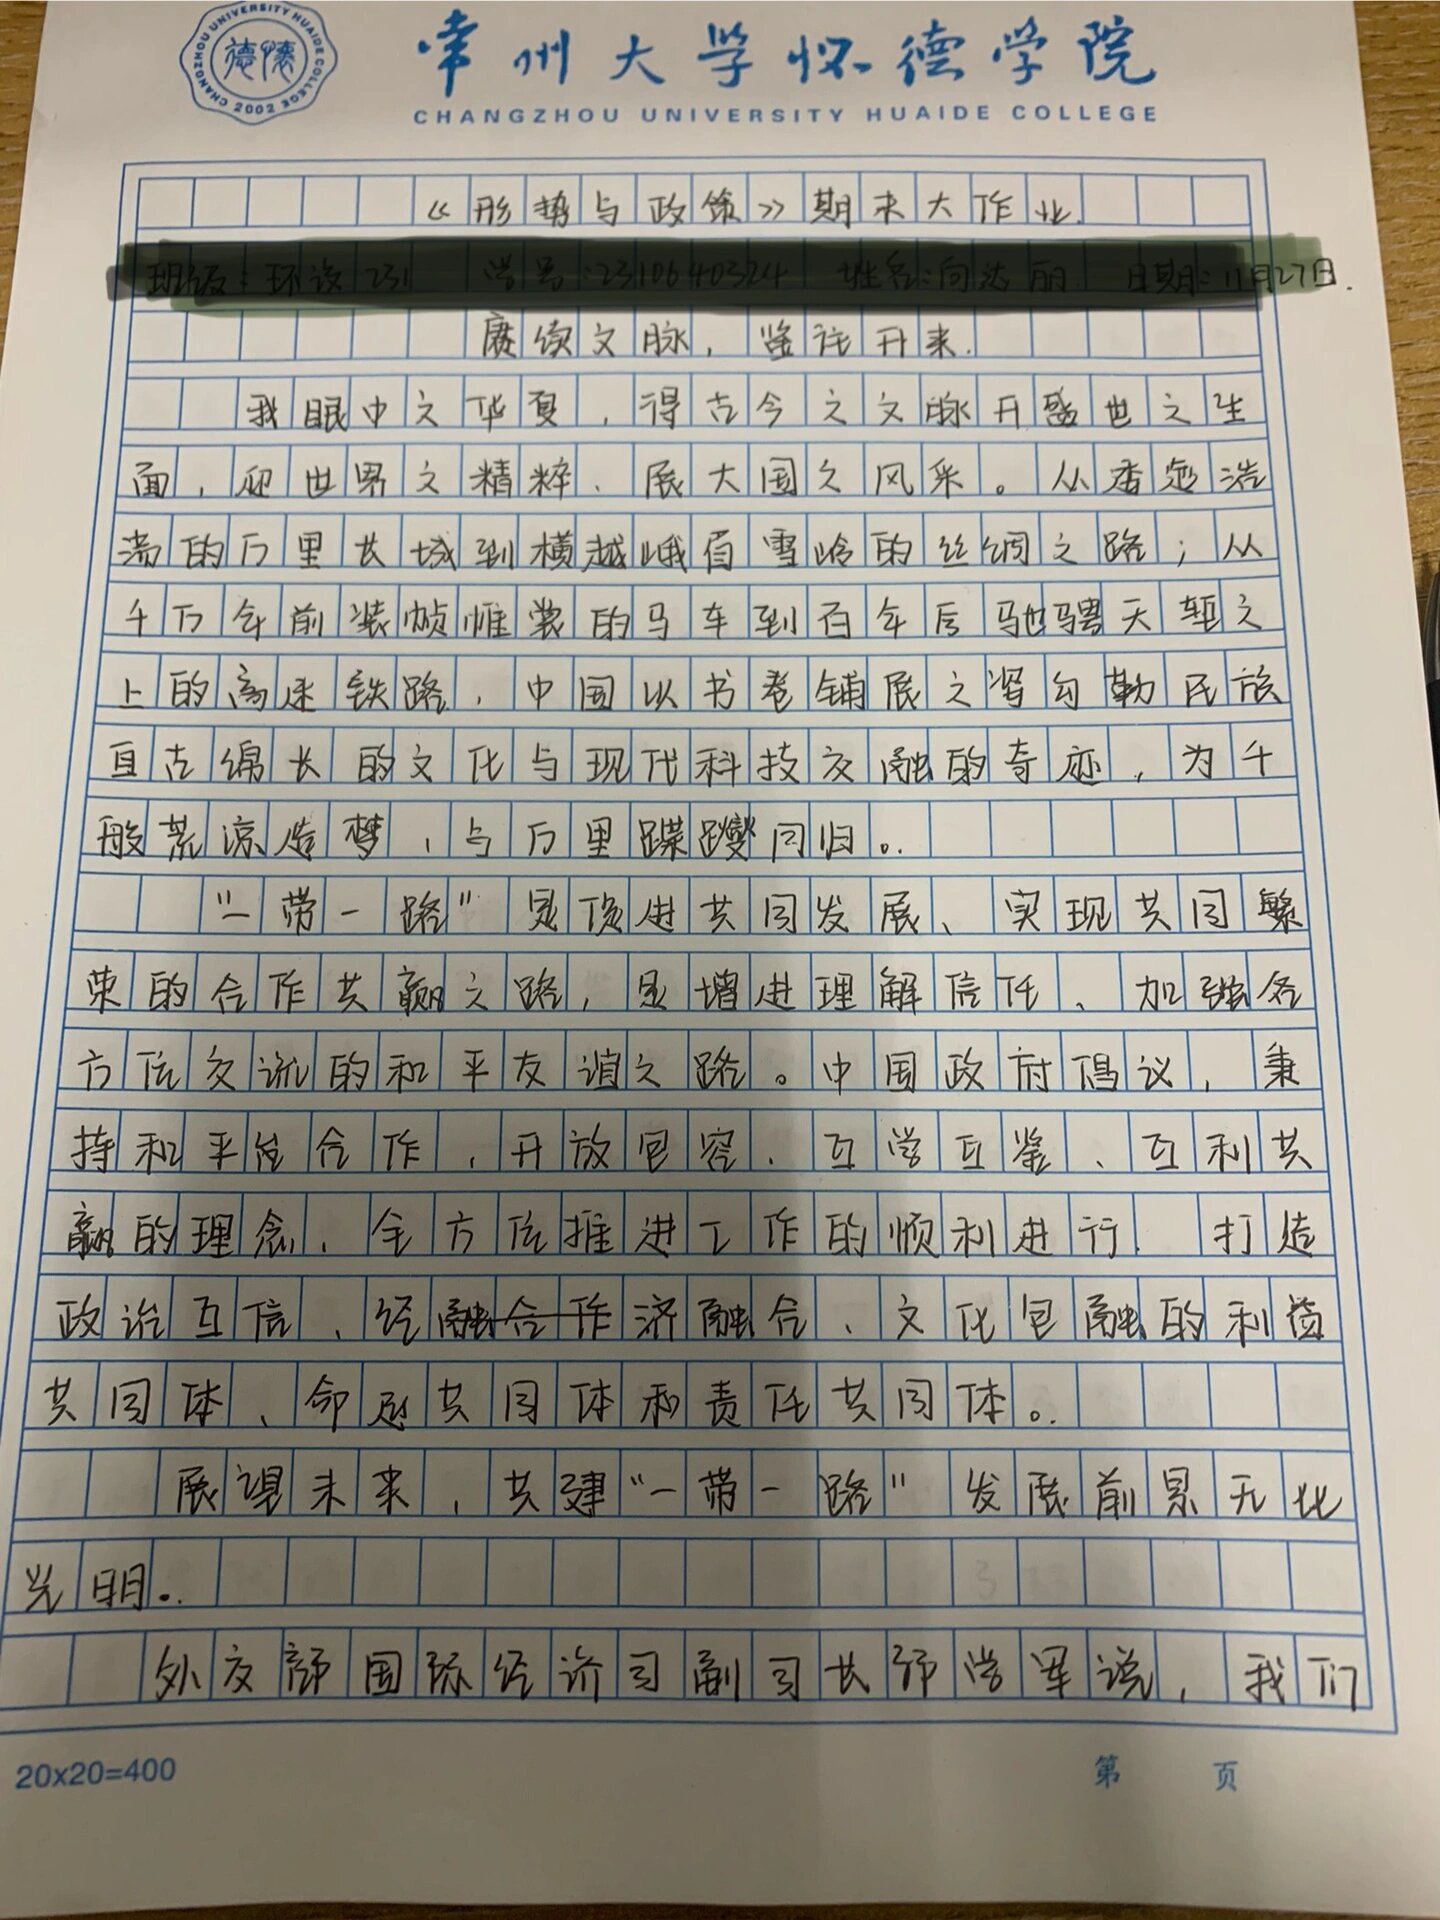 CHANGZHOU UNIVERSITY HUAIDE COLLEGE 2002
常州大学怀德学院
CHANGZHOU UNIVERSITY HUAIDE COLLEGE
《形势与政策》期末大作业.
赓续文脉，鉴往开来.
我眼中文华夏，得古今之文脉开盛世之生
面，迎世界文精粹、展大国之风采。从杳迩浩
荡的万里长城到横越峨眉雪岭的丝绸之路；从
千万年前装帧帷裳的马车到百年后驰骋天堑之
上的高速铁路，中国以书卷铺展之漫勾勒民族
亘古绵长的文化与现代科技交融的奇迹，为千
般荒凉造梦，与万里蹀躞同归。
“一带一路”是促进共同发展、实现共同繁
荣的合作共赢之路，是增进理解信任、加强各
方位交流的和平友谊之路。中国政府倡议，秉
持和平合作，开放包容、互学互鉴、互利共
赢的理念，全方位推进工作的顺利进行 打造
政治互信、经融合作济融合、文化包融的利益
共同体、命运共同体和责任共同体。
展望未来，共建“一带一路”发展前景无比
光明。
外交部国际经济司副司长师学军说，我们
20x20=400
第 页